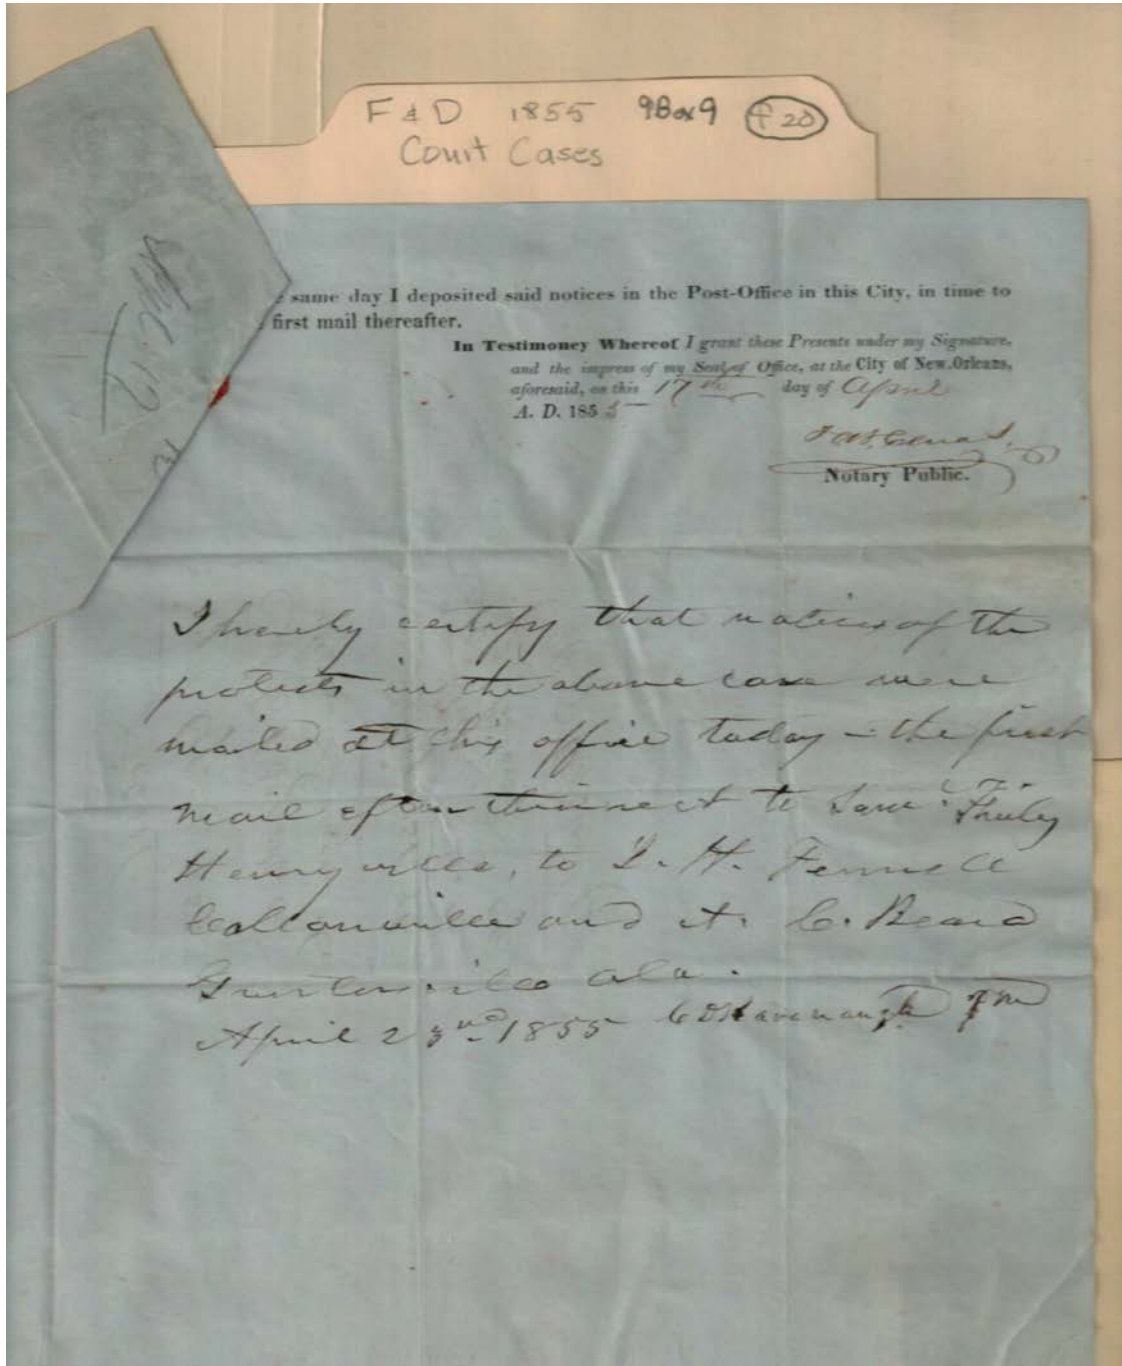 F & D 1855 9Box9 f 20
Court Cases
same day I deposited said notices in the Post-Office in this City, in time to
first mail thereafter.
In Testimoney Whereof I grant these Presents under my Signature,
and the impress of my Seal of Office, at the City of New-Orleans,
aforesaid, on this 17th day of April
A. D. 1855
Notary Public.
I hereby certify that notices of the
protests in the above case were
mailed at this office today - the first
mail after to Saml.
Henryville, to I. H. Fennell
Cottonville and A. C. Beard
Guntersville Ala.
April 23rd 1855 Kavanaugh PM